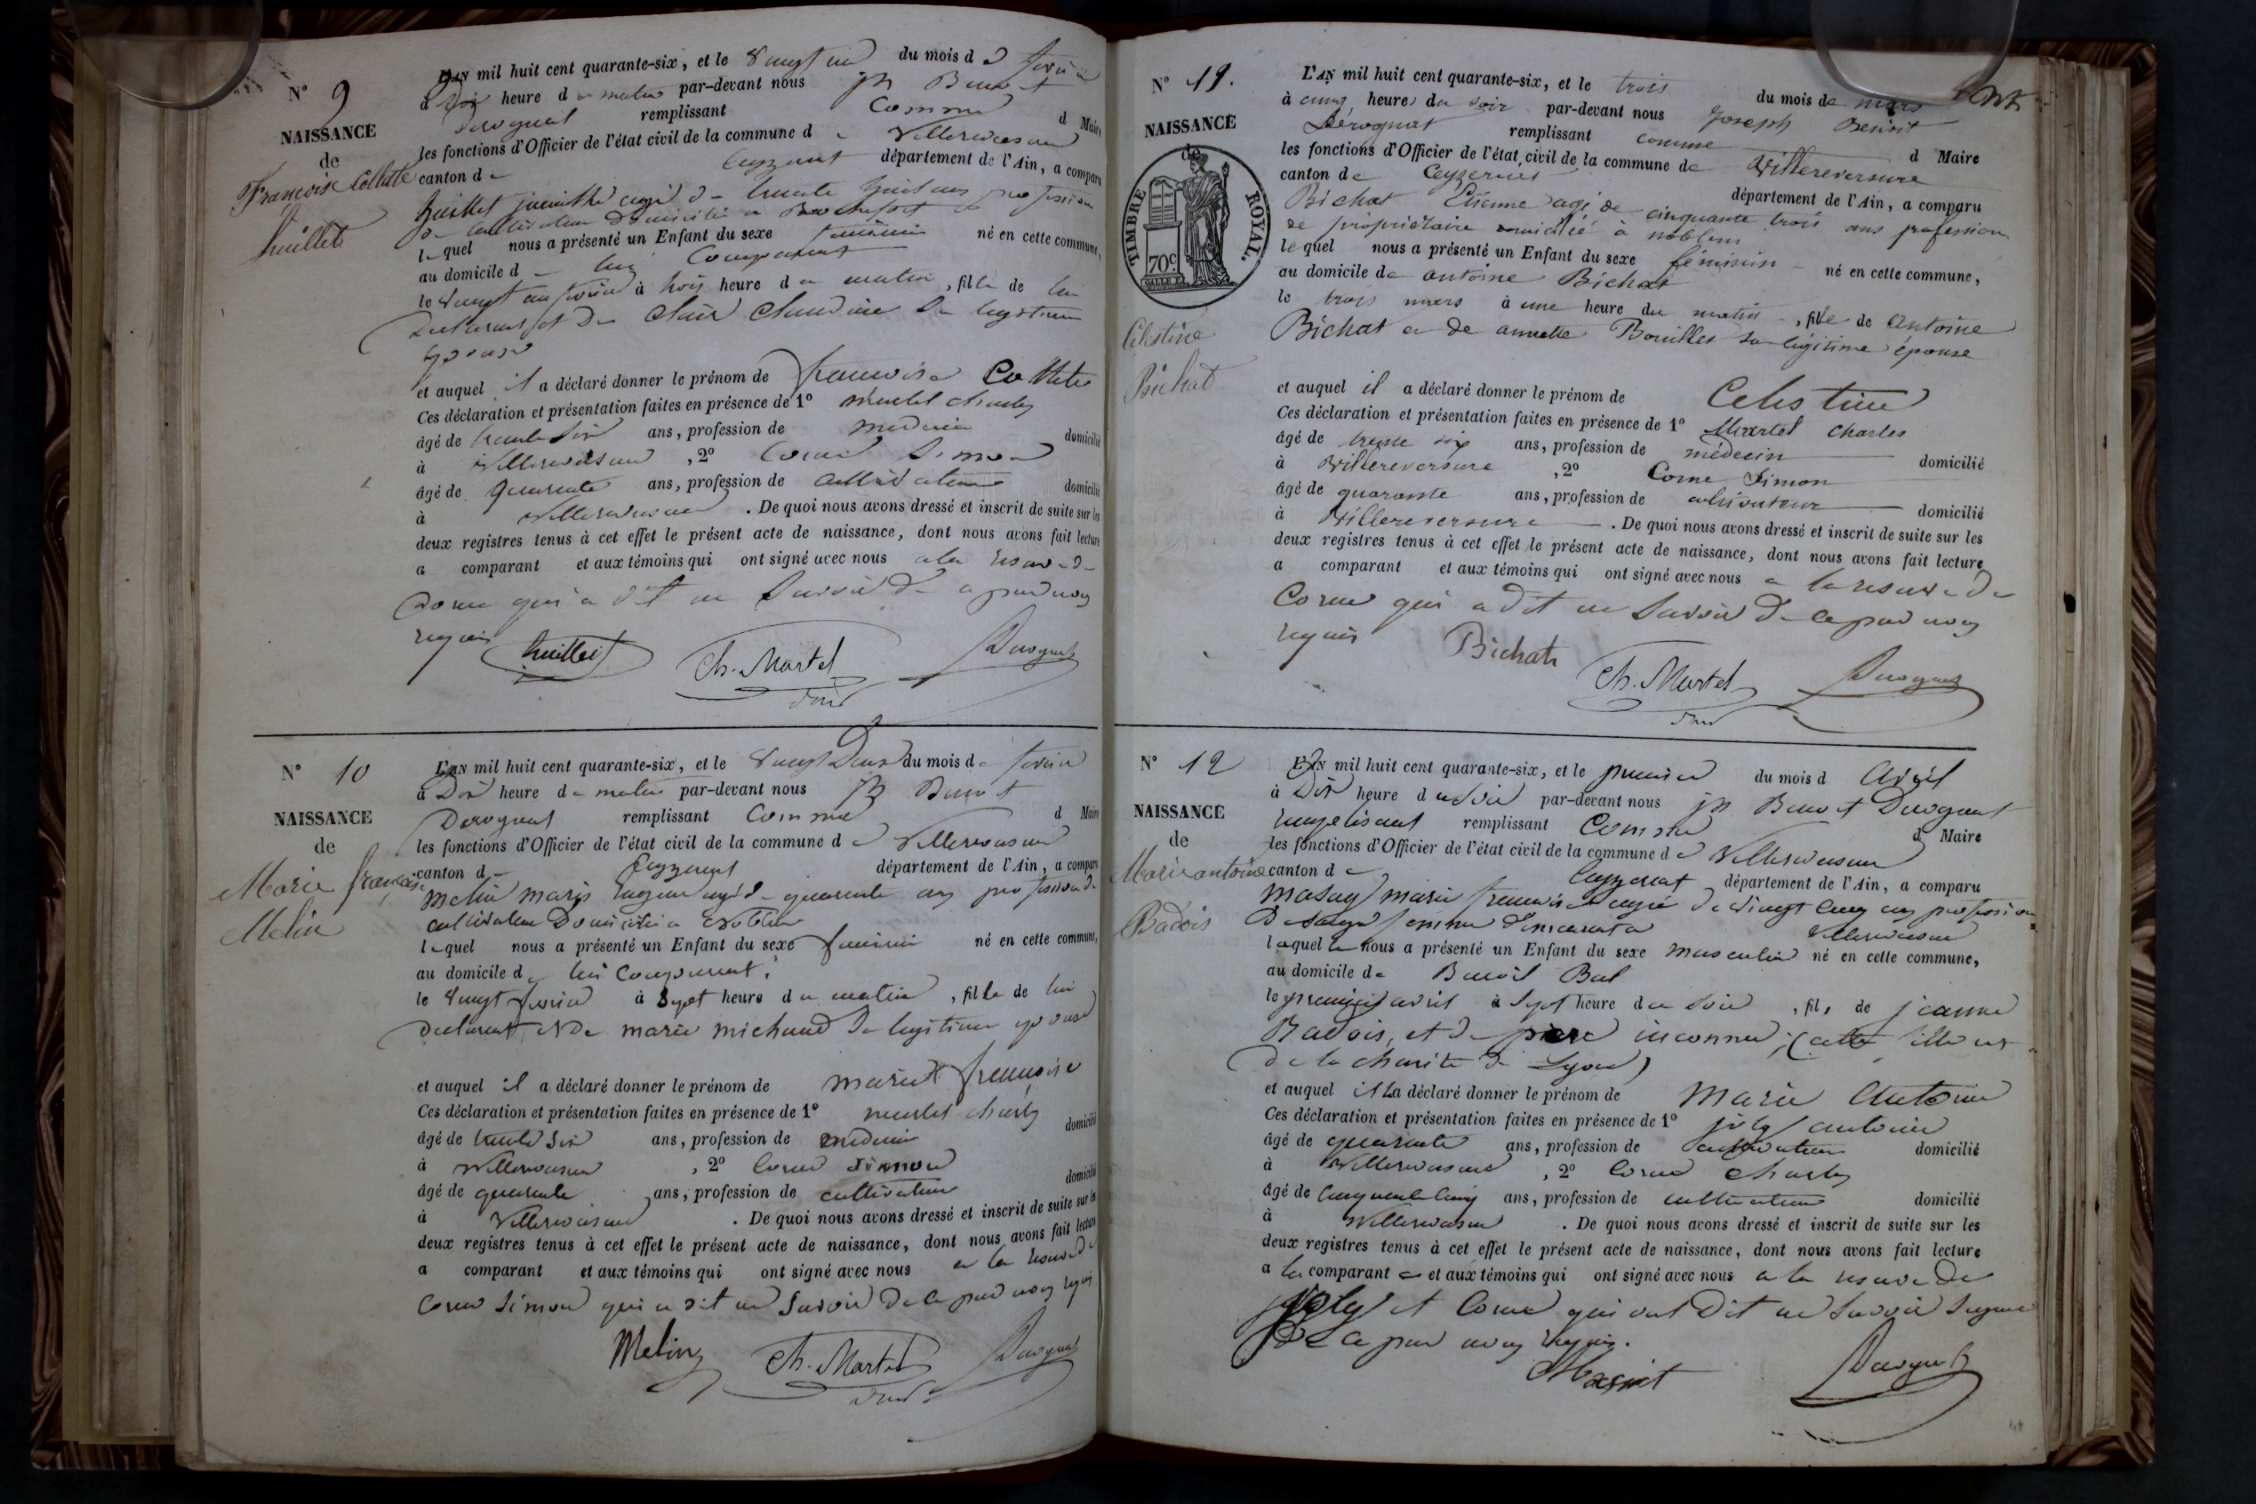 N° 9
NAISSANCE
de
Françoise Collette
huillet
L'AN mil huit cent quarante-six, et le vingt un du mois de février
à Dix heure du matin par-devant nous jh Benoit
Derognat remplissant Comme d Maire
les fonctions d'Officier de l'état civil de la commune de Villereversure
canton de Ceyzeriat département de l'Ain, a comparu
huillet agé de trente huit ans profession
de cultivateur domicilié a Rochefort
lequel nous a présenté un Enfant du sexe féminin né en cette commune,
au domicile de lui Comparant
le vingt un février à trois heure du matin, fille de lui
declarant et de Clair Claudine Sa legitime
epouse
et auquel il a déclaré donner le prénom de francoise Collette
Ces déclaration et présentation faites en présence de 1° martel charles
âgé de trente six ans, profession de medecin domicilié
à Villereversure, 2° Corne Simon
âgé de quarante ans, profession de cultivateur domicilié
à Villereversure. De quoi nous avons dressé et inscrit de suite sur les
deux registres tenus à cet effet le présent acte de naissance, dont nous avons fait lecture
a comparant et aux témoins qui ont signé avec nous a la reserve de
Corne qui a dit ne savoir de ce par nous
requis
huillet Ch. Martel Derognat
N° 10
NAISSANCE
de
Marie françoise
Melin
L'AN mil huit cent quarante-six, et le vingt Deux du mois de février
à Dix heure du matin par-devant nous jh Benoit
Derognat remplissant Comme d Maire
les fonctions d'Officier de l'état civil de la commune de Villereversure
canton de Ceyzeriat département de l'Ain, a comparu
Melin marie agé de quarante ans profession de
cultivateur Domicilié a
lequel nous a présenté un Enfant du sexe féminin né en cette commune,
au domicile de lui Comparant
le vingt février à Sept heure du matin, fille de lui
declarant et De marie michaud Sa legitime epouse
et auquel il a déclaré donner le prénom de marie françoise
Ces déclaration et présentation faites en présence de 1° martel charles
âgé de trente six ans, profession de medecin domicilié
à Villereversure, 2° Corne Simon
âgé de quarante ans, profession de cultivateur domicilié
à Villereversure. De quoi nous avons dressé et inscrit de suite sur les
deux registres tenus à cet effet le présent acte de naissance, dont nous avons fait lecture
a comparant et aux témoins qui ont signé avec nous a la reserve de
Corne Simon qui a dit ne savoir de ce par nous requis
Melin Ch. Martel Derognat
N° 11.
NAISSANCE
de
TIMBRE ROYAL.
70c
Celestine
Bichat
L'AN mil huit cent quarante-six, et le trois du mois de mars
à cinq heures du soir par-devant nous Joseph Benoit
Dérognat remplissant comme d Maire
les fonctions d'Officier de l'état civil de la commune de Villereversure
canton de Ceyzeriat département de l'Ain, a comparu
Bichat Etienne agé de cinquante trois ans profession
de propriétaire domicilié à noblens
lequel nous a présenté un Enfant du sexe féminin né en cette commune,
au domicile de antoine Bichat
le trois mars à une heure du matin, fille de Antoine
Bichat et de annette Bouillet sa légitime épouse
et auquel il a déclaré donner le prénom de Celestine
Ces déclaration et présentation faites en présence de 1° Martel Charles
âgé de trente six ans, profession de médecin domicilié
à Villereversure, 2° Corne Simon
âgé de quarante ans, profession de cultivateur domicilié
à Villereversure. De quoi nous avons dressé et inscrit de suite sur les
deux registres tenus à cet effet le présent acte de naissance, dont nous avons fait lecture
a comparant et aux témoins qui ont signé avec nous a la reserve de
Corne qui a dit ne savoir de ce par nous
requis
Bichat Ch. Martel Derognat
N° 12
NAISSANCE
de
Marie antoine
Badois
L'AN mil huit cent quarante-six, et le premier du mois d Avril
à Dix heure du soir par-devant nous jh Benoit Derognat
remplissant Comme d Maire
les fonctions d'Officier de l'état civil de la commune de Villereversure
canton de Ceyzeriat département de l'Ain, a comparu
marie francoise agée de vingt cinq ans profession
De sage femme Demeurant a Villereversure
laquelle nous a présenté un Enfant du sexe masculin né en cette commune,
au domicile de Benoit Bal
le premier avril à Sept heure du soir, fils de jeanne
Badois, et de père inconnu; (cette fille est
de la charité de Lyon)
et auquel il a déclaré donner le prénom de Marie Antoine
Ces déclaration et présentation faites en présence de 1° joly antoine
âgé de quarante ans, profession de cultivateur domicilié
à Villereversure, 2° Corne Charles
âgé de Cinquante Cinq ans, profession de cultivateur domicilié
à Villereversure. De quoi nous avons dressé et inscrit de suite sur les
deux registres tenus à cet effet le présent acte de naissance, dont nous avons fait lecture
a la comparante et aux témoins qui ont signé avec nous a la reserve de
joly et Corne qui ont Dit ne savoir signer
de ce par nous requis.
Derognat